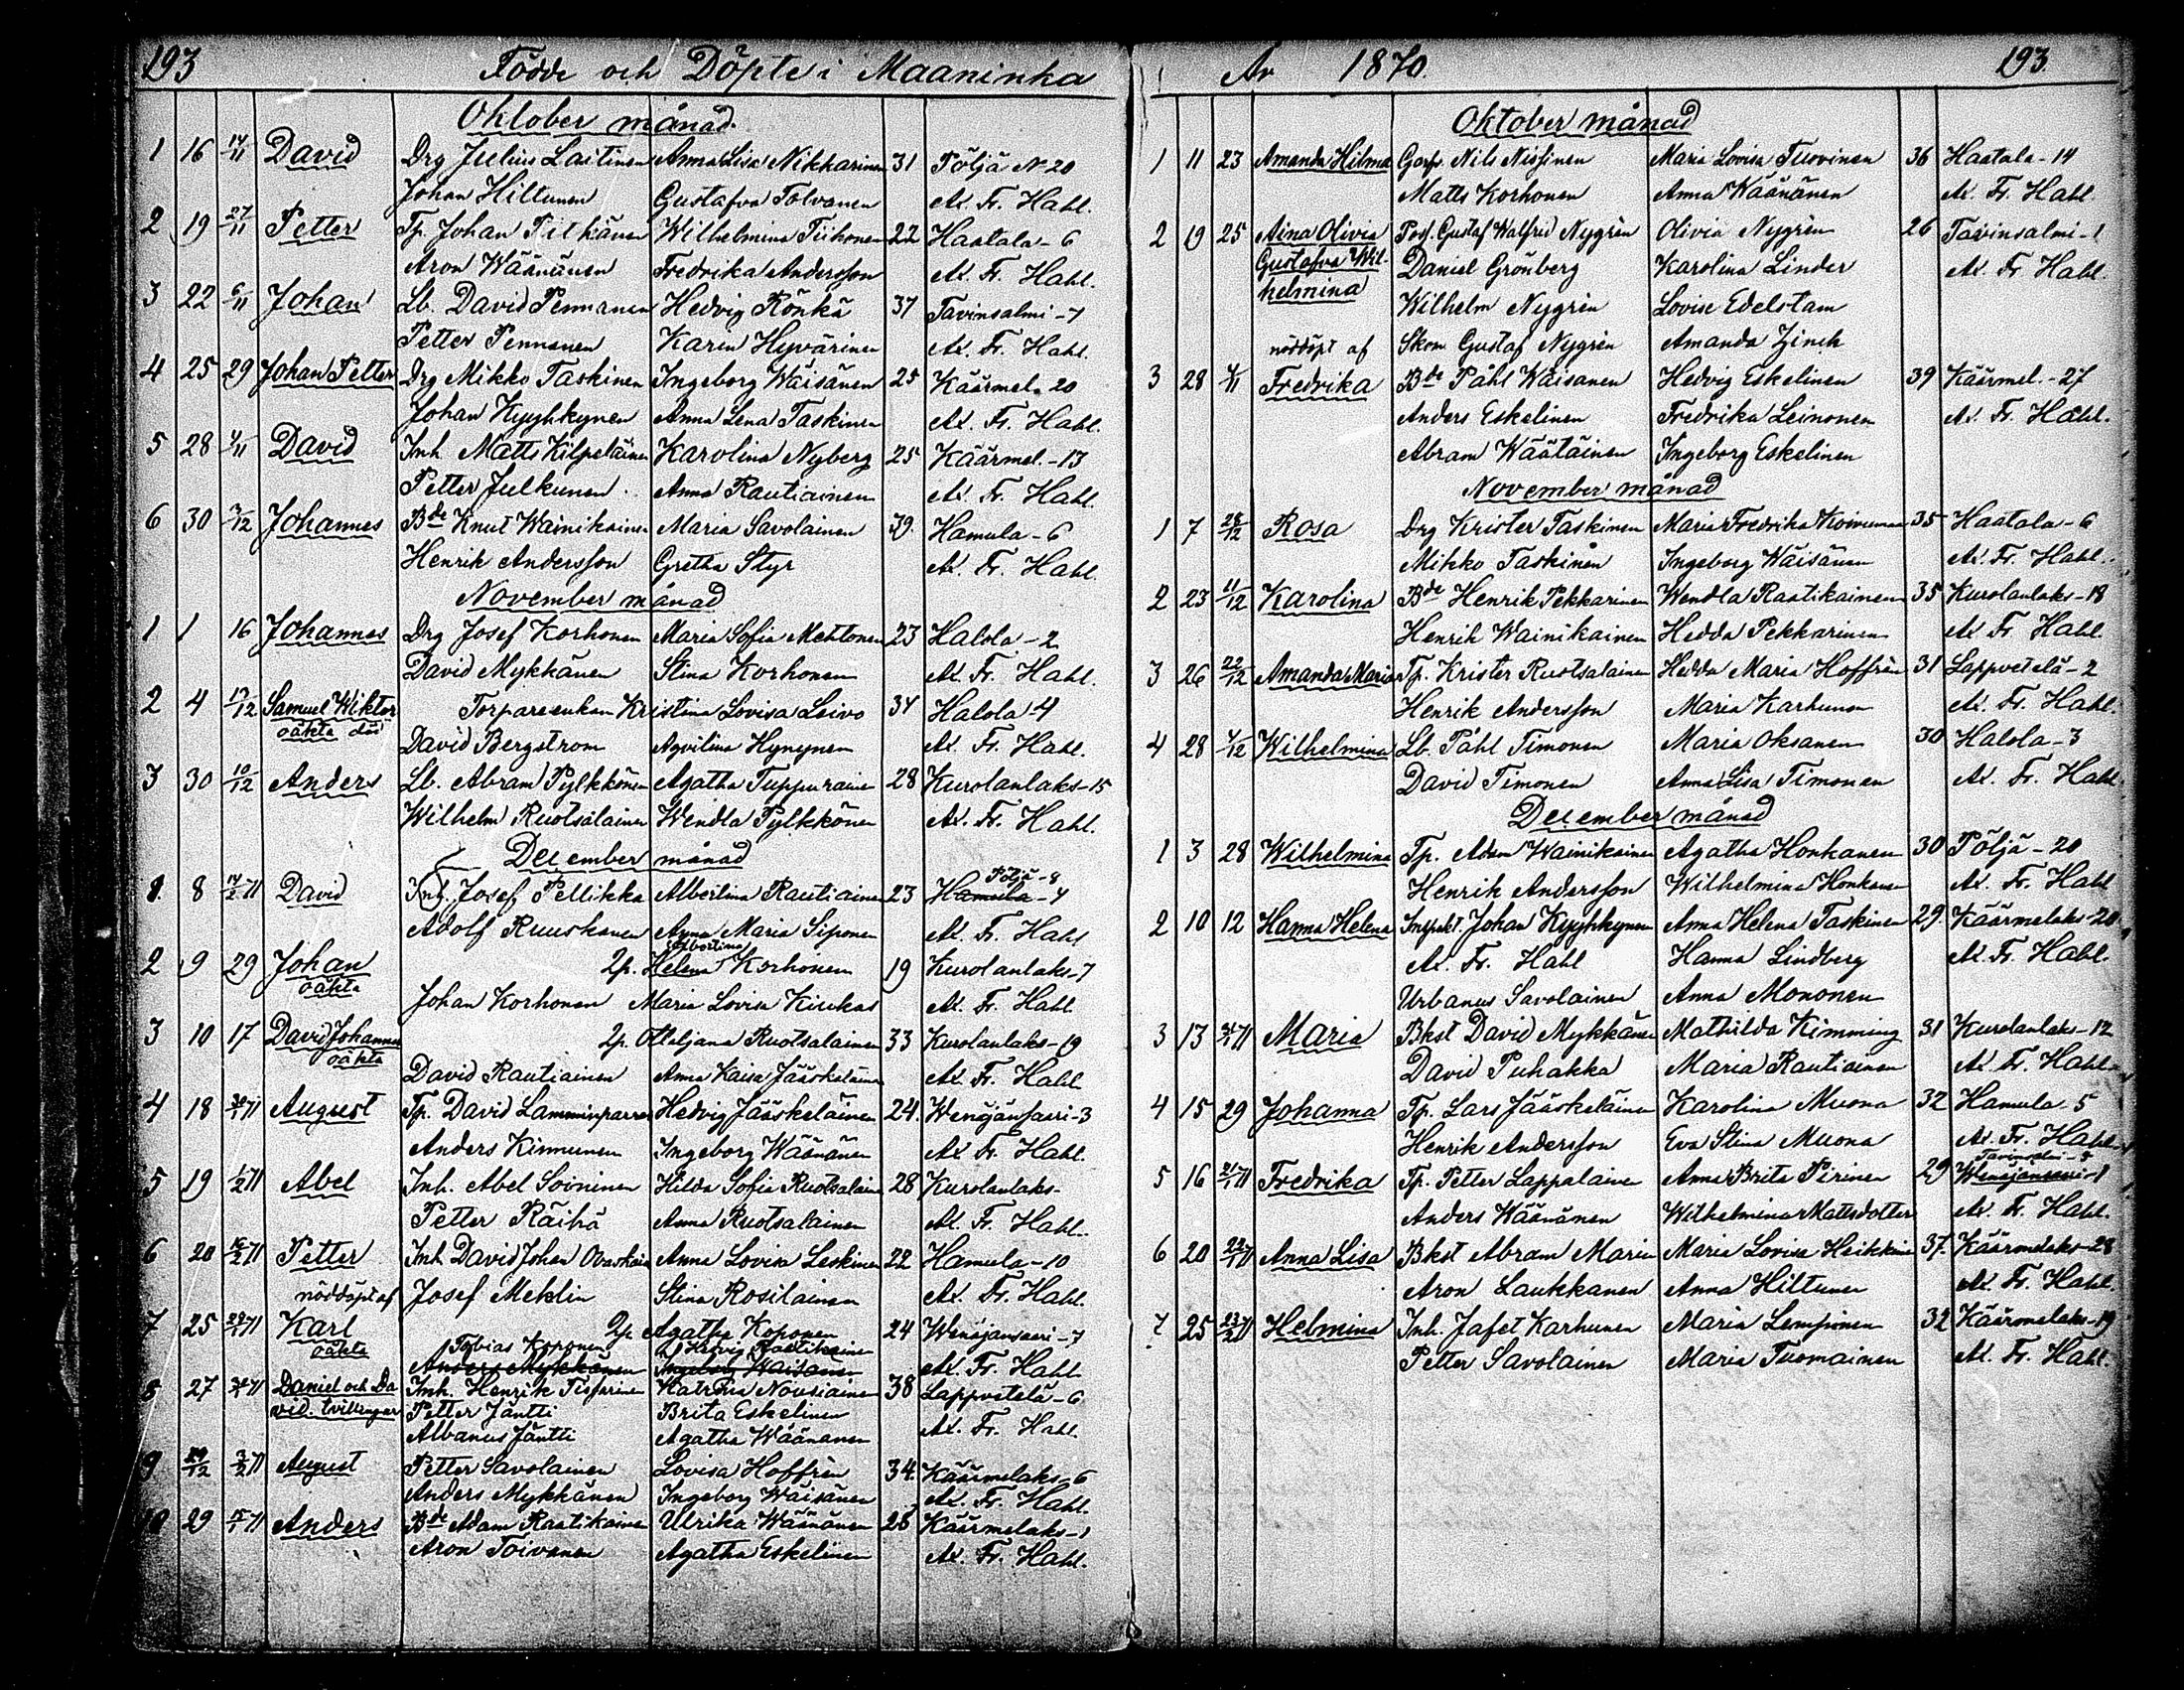 193 Födde och Döpte i Maaninka
Oktober månad.
1 16 14/11 David Drg Julius Laitinen Anna Lisa Nikkarinen 31 Pöljä N 20
Johan Hiltunen Gustafva Tolvanen Ax. Fr. Hahl.
2 19 27/11 Petter Tp. Johan Pitkänen Wilhelmina Tiihonen 22 Haatala-6
Aron Wäänänen Fredrika Andersson Ax. Fr. Hahl.
3 22 6/11 Johan Lb. David Pennanen Hedvig Rönkä 37 Tavinsalmi-7
Petter Pennanen Karin Hyvärinen Ax. Fr. Hahl.
4 25 29 Johan Petter Drg Mikko Taskinen Ingeborg Wäisänen 25 Käärmel. 20
Johan Kyyhkynen Anna Lena Taskinen Ax. Fr. Hahl.
5 28 /11 David Inh. Matts Kilpeläinen Karolina Nyberg 25 Käärmel.-13
Petter Julkunen Anna Rautiainen Ax. Fr. Hahl.
6 30 /12 Johannes Bde Knut Wainikainen Maria Savolainen 39. Hamula-6
Henrik Andersson Gretha Styr Ax. Fr. Hahl.
November månad
1 1 16 Johannes Drg Josef Korhonen Maria Sofia Mehtonen 23 Halola-2
David Mykkänen Stina Korhonen Ax. Fr. Hahl.
2 4 /12 Samuel Wiktor Torpareenkan Kristina Lovisa Leivo 34 Halola-4
oäkta David Bergstrom Aqvilina Hynynen Ax. Fr. Hahl.
3 30 10/12 Anders Lb. Abram Pylkkönen Agatha Tuppurainen 28 Kurolanlaks-15
Wilhelm Ruotsalainen Wendla Pylkkönen Ax. Fr. Hahl.
December månad
Pöljä-8
1. 8 71 David Inh. Josef Pellikka Albertina Rautiainen 23 Hamula-4
Adolf Ruuskanen Anna Maria Siponen Ax. Fr. Hahl
Albertina
2 9 29 Johan 2p. Helena Korhonen 19 Kurolanlaks-7
oäkta Johan Korhonen Maria Lovisa Kiukas Ax. Fr. Hahl
3 10 17 David Johannes 2p. Ottiljana Ruotsalainen 33 Kurolanlaks-19
oäkta David Rautiainen Anna Kaisa Jääskeläinen Ax. Fr. Hahl
4 18 71 August Tp. David Lamminparras Hedvig Jääskeläinen 24. Wenäjänsaari-3
Anders Kinnunen Ingeborg Wäänänen Ax. Fr. Hahl.
5 19 1/2 71 Abel Inh. Abel Soininen Hilda Sofia Ruotsalain 28 Kurolanlaks-
Petter Räihä Anna Ruotsalainen Ax. Fr. Hahl.
6 20 71 Petter Inh David Johan Ovaskain Anna Lovisa Leskinen 22 Hamula-10
nöddöpt af Josef Meklin Stina Rosilainen Ax. Fr. Hahl.
7 25 71 Karl 2p. Agatha Koponen 24 Wenäjänsaari-7
oäkta Tobias Koponen Hedvig Raatikainen
Anders Mykkänen Ingeborg Wäisänen Ax. Fr. Hahl
8 27 71 Daniel och Da Inh. Henrik Tissarinen Katrina Nousiainen 38 Lappvetelä-6
vid. tvillingar Petter Jäntti Brita Eskelinen Ax. Fr. Hahl.
Albanus Jäntti Agatha Wäänänen
9 /12 3/2 71 August Petter Savolainen Lovisa Hoffrén 34. Käärmelaks-6
Anders Mykkänen Ingeborg Wäisänen Ax. Fr. Hahl.
10 29 71 Anders Bde Adam Raatikainen Ulrika Wäänänen 28 Käärmelaks-1
Aron Toivanen Agatha Eskelinen Ax. Fr. Hahl.
År 1870. 193.
Oktober månad
1 11 23 Amanda Hilma Gorfs. Nils Nissinen Maria Lovisa Tuovinen 36 Haatala-14
Matts Korhonen Anna Wäänänen Ax. Fr. Hahl.
2 19 25 Aina Olivia Poss. Gustaf Walfrid Nygrén Olivia Nygrén 26 Tavinsalmi-1
Gustafva Wil- Daniel Grönberg Karolina Linder Ax. Fr. Hahl.
helmina Wilhelm Nygrén Lovise Edelstam
nöddöpt af Skom Gustaf Nygrén Amanda Zinck
3 28 /11 Fredrika Bde Påhl Wäisanen Hedvig Eskelinen 39 Käärmel.-27
Anders Eskelinen Fredrika Leinonen Ax. Fr. Hahl.
Abram Wäätäinen Ingeborg Eskelinen
November månad
1 7 28/12 Rosa Drg Krister Taskinen Maria Fredrika Koivunen 35 Haatala-6
Mikko Taskinen Ingeborg Wäisänen Ax. Fr. Hahl.
2 23 11/12 Karolina Bde Henrik Pekkarinen Wendla Raatikainen 35 Kurolanlaks-18
Henrik Wainikainen Hedda Pekkarinen Ax Fr. Hahl.
3 26 22/12 Amanda Maria Tp. Krister Ruotsalainen Hedda Maria Hoffrén 31 Lappvetelä-2
Henrik Andersson Maria Karhunen Ax. Fr. Hahl.
4 28 /12 Wilhelmina Lb. Påhl Timonen Maria Oksanen 30 Halola-3
David Timonen Anna Lisa Timonen Ax. Fr. Hahl
December månad
1 3 28 Wilhelmina Tp. Adam Wainikainen Agatha Honkanen 30 Pöljä-20
Henrik Andersson Wilhelmina Honkanen Ax. Fr. Hahl
2 10 12 Hanna Helena Inspekt. Johan Kyyhkynen Anna Helena Taskinen 29. Käärmelaks-20
Ax. Fr. Hahl Hanna Lindberg Ax. Fr. Hahl.
Urbanus Savolainen Anna Mononen
3 13 71 Maria Bkst David Mykkänen Mathilda Kimming 31 Kurolanlaks-12
David Puhakka Maria Rautiainen Ax. Fr. Hahl.
4 15 29 Johanna Tp. Lars Jääskeläinen Karolina Muona 32 Hamula-5
Henrik Andersson Eva Stina Muona Ax. Fr. Hahl.
Tavinsalmi-8
5 16 71 Fredrika Tp. Petter Lappalainen Anna Brita Pirinen 29 Wenäjänsaari-1
Anders Wäänänen Wilhelmina Mattsdotter Ax. Fr. Hahl.
6 20 71 Anna Lisa Bkst Abram Marin Maria Lovisa Heikkinen 37. Käärmelaks-28
Aron Laukkanen Anna Hiltunen Ax. Fr. Hahl.
7 25 71 Helmina Inh. Jafet Karhunen Maria Lempinen 32 Käärmelaks-19
Petter Savolainen Maria Tuomainen Ax. Fr. Hahl.